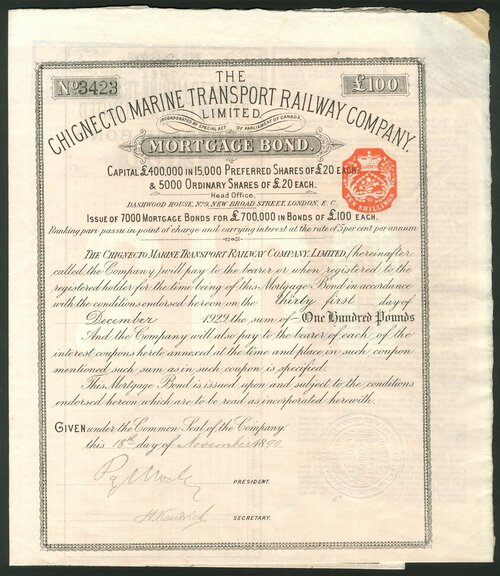 THE
No 3423
£100
CHIGNECTO MARINE TRANSPORT RAILWAY COMPANY,
LIMITED
INCORPORATED BY SPECIAL ACT OF PARLIAMENT OF CANADA.
MORTGAGE BOND.
CAPITAL £400,000 IN 15,000 PREFERRED SHARES OF £20 EACH
& 5000 ORDINARY SHARES OF £20 EACH.
Head Office.
DASHWOOD HOUSE, No 9, NEW BROAD STREET, LONDON, E.C.
TEN SHILLINGS
ISSUE OF 7000 MORTGAGE BONDS FOR £700,000 IN BONDS OF £100 EACH.
Ranking pari passu in point of charge and carrying interest at the rate of 5 per cent per annum
THE CHIGNECTO MARINE TRANSPORT RAILWAY COMPANY, LIMITED, (hereinafter
called the Company) will pay to the bearer or when registered to the
registered holder for the time being of this Mortgage Bond in accordance
with the conditions endorsed hereon on the thirty first day of
December 1922 the sum of One Hundred Pounds
And the Company will also pay to the bearer of each of the
interest coupons hereto annexed at the time and place in such coupon
mentioned such sum as in such coupon is specified.
This Mortgage Bond is issued upon and subject to the conditions
endorsed hereon which are to be read as incorporated herewith.
GIVEN under the Common Seal of the Company
this 18th day of November 1890
PRESIDENT.
SECRETARY.